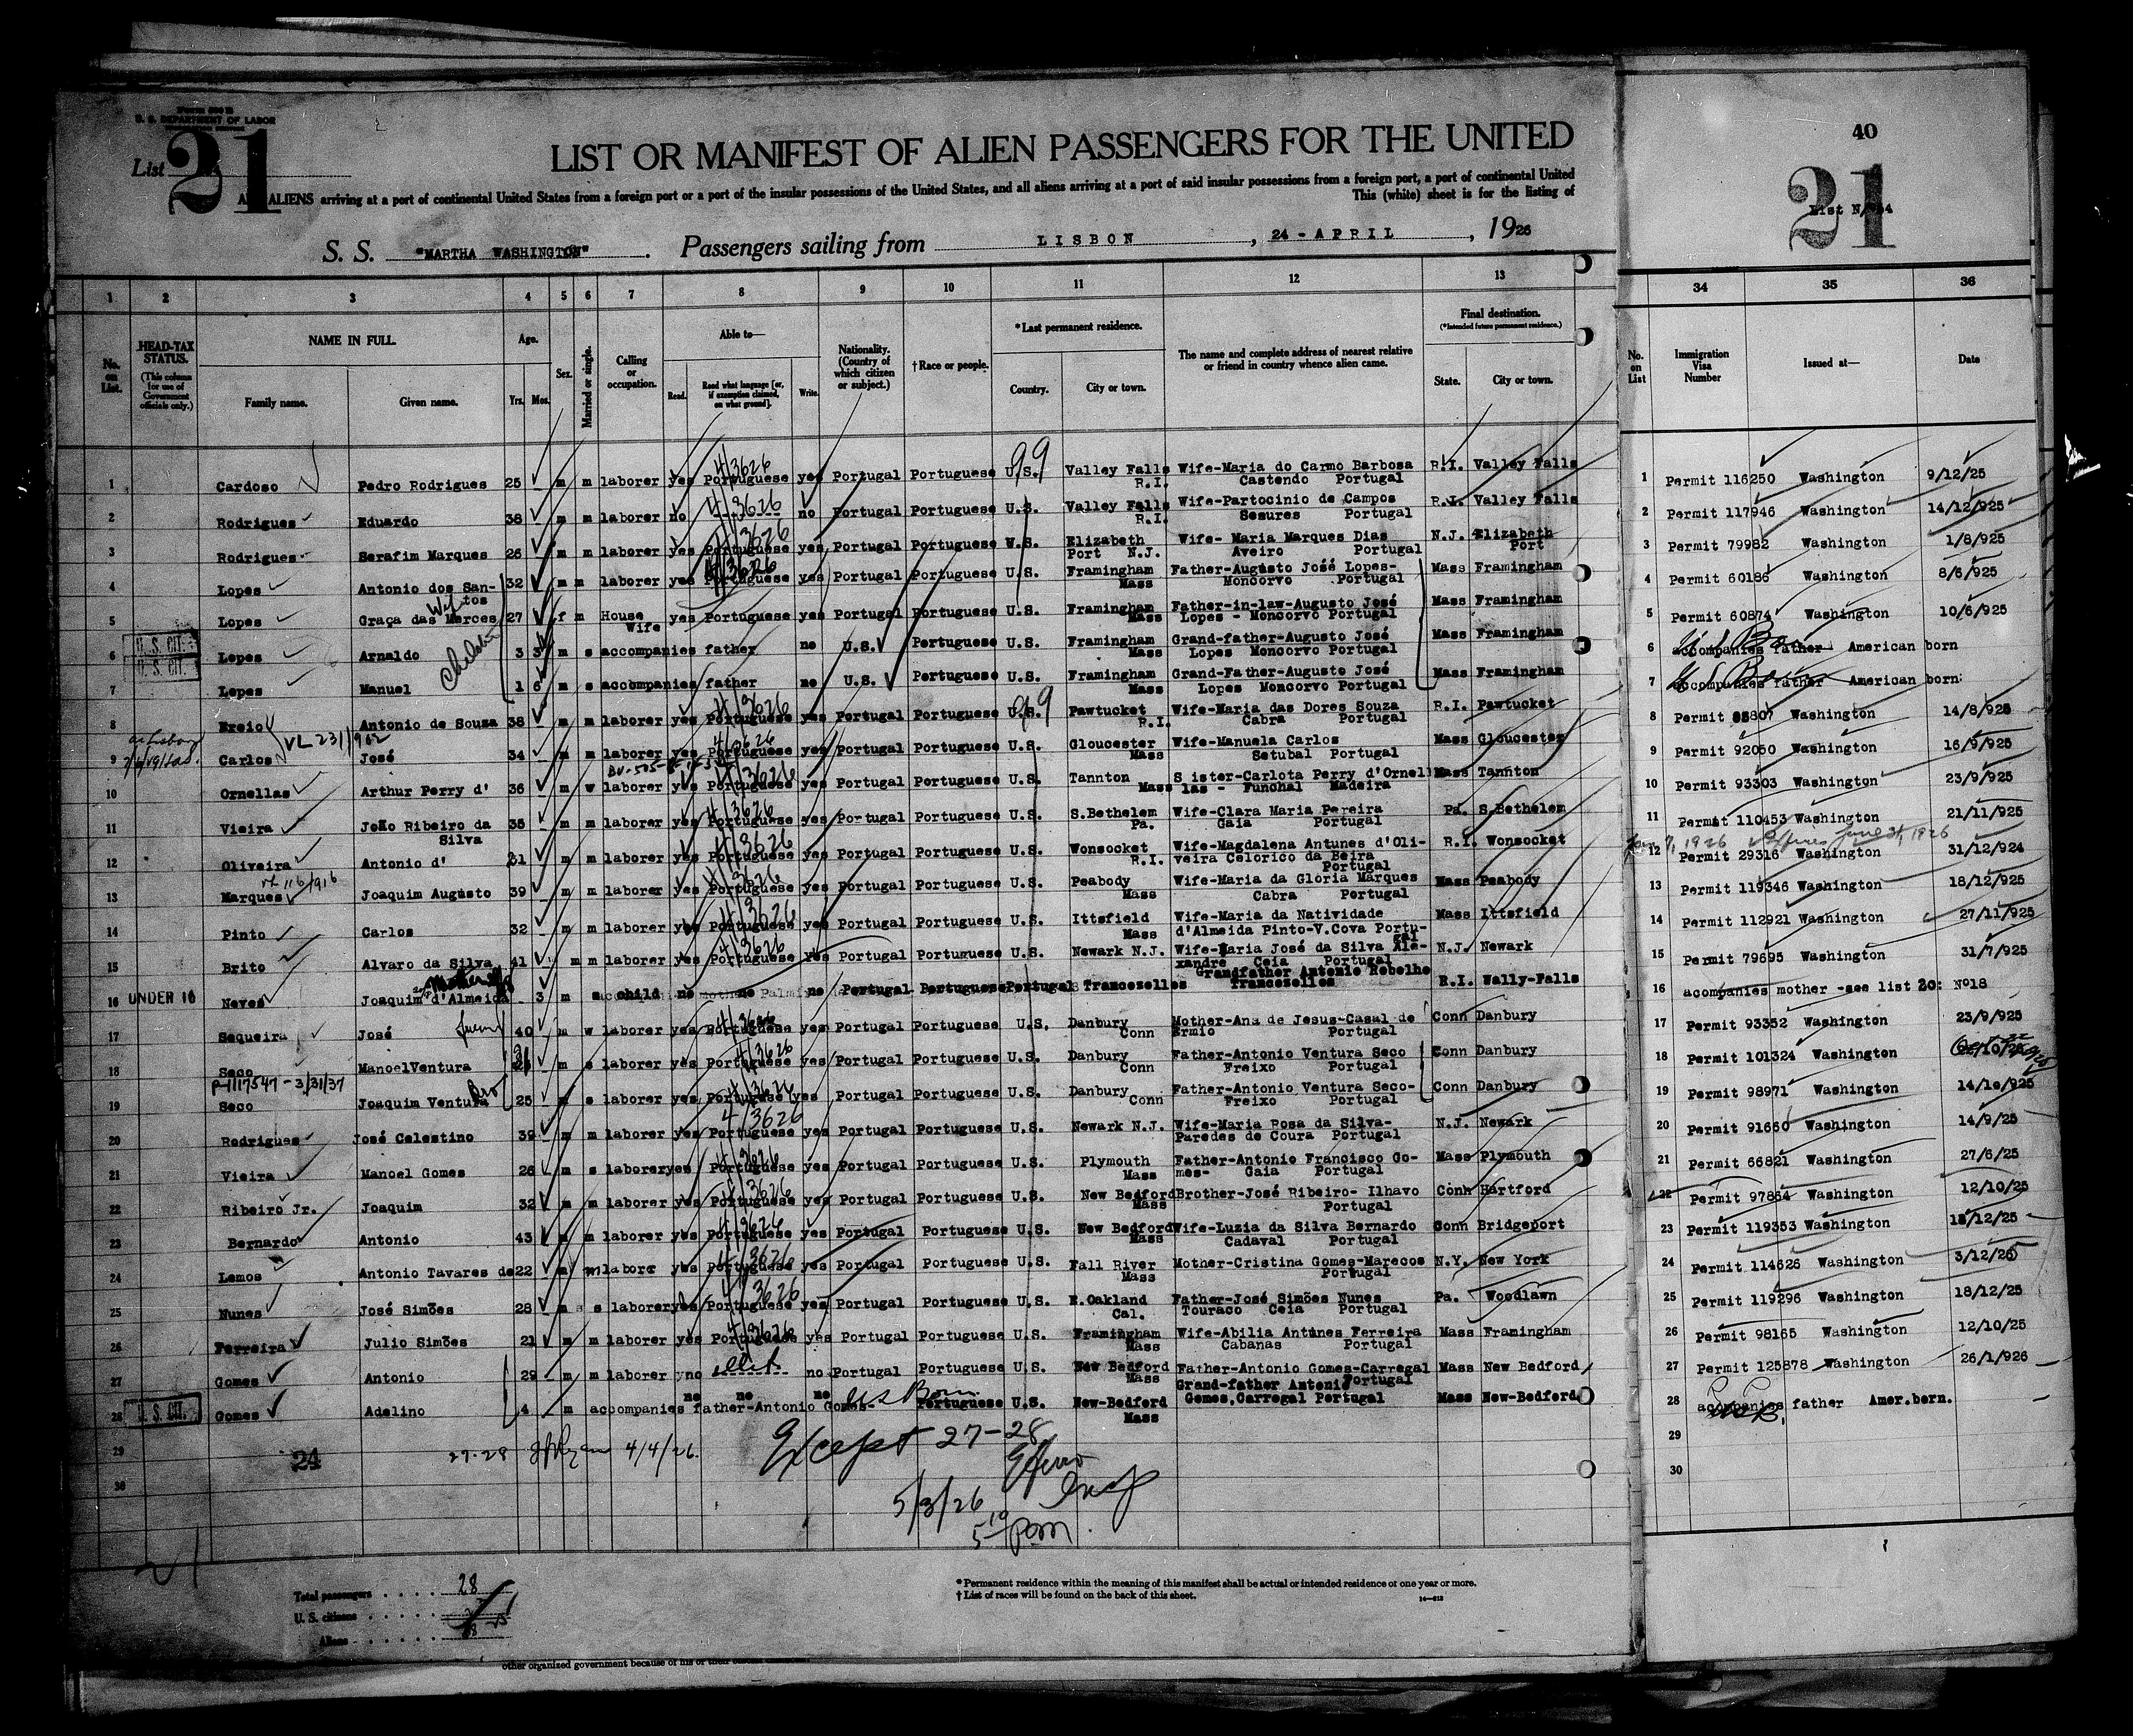 Form 500 B
U. S. DEPARTMENT OF LABOR
List 21
LIST OR MANIFEST OF ALIEN PASSENGERS FOR THE UNITED
ALL ALIENS arriving at a port of continental United States from a foreign port or a port of the insular possessions of the United States, and all aliens arriving at a port of said insular possessions from a foreign port, a port of continental United
This (white) sheet is for the listing of
S. S. "MARTHA WASHINGTON". Passengers sailing from LISBON, 24 - APRIL, 1926
40
21
1 2 3 4 5 6 7 8 9 10 11 12 13 34 35 36
No. on List.
HEAD-TAX STATUS. (This column for use of Government officials only.)
NAME IN FULL
Family name. Given name.
Age. Yrs. Mos.
Sex.
Married or single.
Calling or occupation.
Able to—
Read. Read what language [or, if exemption claimed, on what ground]. Write.
Nationality. (Country of which citizen or subject.)
†Race or people.
*Last permanent residence.
Country. City or town.
The name and complete address of nearest relative or friend in country whence alien came.
Final destination. (*Intended future permanent residence.)
State. City or town.
No. on List Immigration Visa Number Issued at— Date
1 Cardoso Pedro Rodrigues 25 m m laborer yes Portuguese yes Portugal Portuguese U.S. Valley Falls R.I. Wife-Maria do Carmo Barbosa Castendo Portugal R.I. Valley Falls 1 Permit 116250 Washington 9/12/25
2 Rodrigues Eduardo 38 m m laborer no no Portugal Portuguese U.S. Valley Falls R.I. Wife-Partocinio de Campos Sesures Portugal R.I. Valley Falls 2 Permit 117946 Washington 14/12/925
3 Rodrigues Serafim Marques 26 m m laborer yes Portuguese yes Portugal Portuguese U.S. Elizabeth Port N.J. Wife- Maria Marques Dias Aveiro Portugal N.J. Elizabeth Port 3 Permit 79982 Washington 1/8/925
4 Lopes Antonio dos Santos 32 m m laborer yes Portuguese yes Portugal Portuguese U.S. Framingham Mass Father-Augusto José Lopes- Moncorvo Portugal Mass Framingham 4 Permit 60186 Washington 8/6/925
5 Lopes Graça das Merces Wife 27 f m House Wife yes Portuguese yes Portugal Portuguese U.S. Framingham Mass Father-in-law-Augusto José Lopes - Moncorvo Portugal Mass Framingham 5 Permit 60874 Washington 10/6/925
U. S. CIT. 6 Lopes Arnaldo 3 3 m s accompanies father no U.S. Portuguese U.S. Framingham Mass Grand-father-Augusto José Lopes Moncorvo Portugal Mass Framingham 6 accompanies father- American born
U. S. CIT. 7 Lopes Manuel 1 6 m s accompanies father no U.S. Portuguese U.S. Framingham Mass Grand-Father-Augusto José Lopes Moncorvo Portugal Mass Framingham 7 accompanies father American born
8 Ereio Antonio de Souza 38 m m laborer yes Portuguese yes Portugal Portuguese U.S. Pawtucket R.I. Wife-Maria das Dores Souza Cabra Portugal R.I. Pawtucket 8 Permit 85807 Washington 14/8/925
9 Carlos José 34 m m laborer yes Portuguese yes Portugal Portuguese U.S. Gloucester Mass Wife-Manuela Carlos Setubal Portugal Mass Gloucester 9 Permit 92050 Washington 16/9/925
10 Ornellas Arthur Perry d' 36 m w laborer yes Portuguese yes Portugal Portuguese U.S. Tannton Mass Sister-Carlota Perry d'Ornellas - Funchal Madeira Mass Tannton 10 Permit 93303 Washington 23/9/925
11 Vieira João Ribeiro da Silva 35 m m laborer yes Portuguese yes Portugal Portuguese U.S. S.Bethelem Pa. Wife-Clara Maria Pereira Gaia Portugal Pa. S.Bethelem 11 Permit 110453 Washington 21/11/925
12 Oliveira Antonio d' 31 m m laborer yes Portuguese yes Portugal Portuguese U.S. Wonsocket R.I. Wife-Magdalena Antunes d'Oliveira Celorico da Beira Portugal R.I. Wonsocket 12 Permit 29316 Washington 31/12/924
13 Marques Joaquim Augusto 39 m m laborer yes Portuguese yes Portugal Portuguese U.S. Peabody Mass Wife-Maria da Gloria Marques Cabra Portugal Mass Peabody 13 Permit 119346 Washington 18/12/925
14 Pinto Carlos 32 m m laborer yes Portuguese yes Portugal Portuguese U.S. Ittsfield Mass Wife-Maria da Natividade d'Almeida Pinto-V.Cova Portugal Mass Ittsfield 14 Permit 112921 Washington 27/11/925
15 Brito Alvaro da Silva 41 m m laborer yes Portuguese yes Portugal Portuguese U.S. Newark N.J. Wife-Maria José da Silva Alexandre Ceia Portugal N.J. Newark 15 Permit 79695 Washington 31/7/925
16 UNDER 16 Neves Joaquim d'Almeida 3 m child no no no Portugal Portuguese Portugal Trancozelles Grandfather Antonio Rebelho Trancozelles R.I. Wally-Falls 16 acompanies mother -see list 20: Nº18
17 Sequeira José 40 m w laborer yes Portuguese yes Portugal Portuguese U.S. Danbury Conn Mother-Ana de Jesus-Casal de Ermio Portugal Conn Danbury 17 Permit 93352 Washington 23/9/925
18 Seco ManoelVentura m s laborer yes Portuguese yes Portugal Portuguese U.S. Danbury Conn Father-Antonio Ventura Seco Freixo Portugal Conn Danbury 18 Permit 101324 Washington
19 Seco Joaquim Ventura 25 m s laborer yes Portuguese yes Portugal Portuguese U.S. Danbury Conn Father-Antonio Ventura Seco- Freixo Portugal Conn Danbury 19 Permit 98971 Washington 14/10/925
20 Rodrigues José Celestino 39 m m laborer yes Portuguese yes Portugal Portuguese U.S. Newark N.J. Wife-Maria Rosa da Silva- Paredes de Coura Portugal N.J. Newark 20 Permit 91660 Washington 14/9/25
21 Vieira Manoel Gomes 26 m s laborer yes Portuguese yes Portugal Portuguese U.S. Plymouth Mass Father-Antonio Francisco Gomes- Gaia Portugal Mass Plymouth 21 Permit 66821 Washington 27/6/25
22 Ribeiro Jr. Joaquim 32 m m laborer yes Portuguese yes Portugal Portuguese U.S. New Bedford Mass Brother-José Ribeiro- Ilhavo Portugal Conn Hartford 22 Permit 97864 Washington 12/10/25
23 Bernardo Antonio 43 m m laborer yes Portuguese yes Portugal Portuguese U.S. New Bedford Mass Wife-Luzia da Silva Bernardo Cadaval Portugal Conn Bridgeport 23 Permit 119353 Washington 18/12/25
24 Lemos Antonio Tavares de 22 m m labore yes Portuguese yes Portugal Portuguese U.S. Fall River Mass Mother-Cristina Gomes-Marecos Portugal N.Y. New York 24 Permit 114626 Washington 3/12/25
25 Nunes José Simões 28 m s laborer yes Portuguese yes Portugal Portuguese U.S. E.Oakland Cal. Father-José Simões Nunes Touraco Ceia Portugal Pa. Woodlawn 25 Permit 119296 Washington 18/12/25
26 Ferreira Julio Simões 21 m m laborer yes Portuguese yes Portugal Portuguese U.S. Framingham Mass Wife-Abilia Antunes Ferreira Cabanas Portugal Mass Framingham 26 Permit 98165 Washington 12/10/25
27 Gomes Antonio 29 m m laborer no no Portugal Portuguese U.S. New Bedford Mass Father-Antonio Gomes-Carregal Portugal Mass New Bedford 27 Permit 125878 Washington 26/1/926
U. S. CIT. 28 Gomes Adelino 4 m accompanies father-Antonio Gomes- no no no US Born Portuguese U.S. New-Bedford Mass Grand-father Antonio Gomes,Carregal Portugal Mass New-Bedford 28 acompanies father Amer.born.
29 24 27-28 4/4/26 Except 27-28 29
30 30
5/3/26
5 10 pm
Total passengers . . . . . 28
U. S. citizens . . . . .
Aliens . . . . . .
*Permanent residence within the meaning of this manifest shall be actual or intended residence of one year or more.
†List of races will be found on the back of this sheet.
14—612
other organized government because of his or their